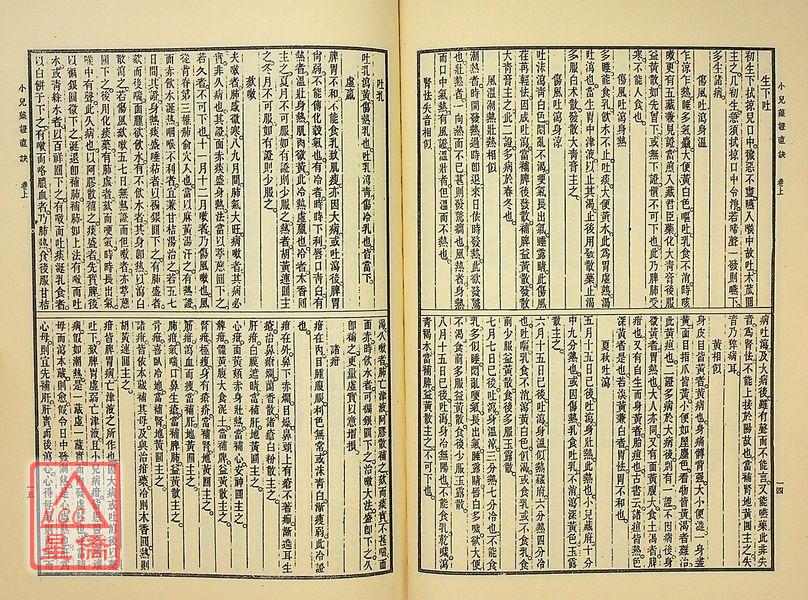 小兒藥證直訣 卷上
生下吐
初生下拭掠兒口中穢惡不盡嚥入喉中故吐木瓜圓
主之凡初生急須拭掠口中令淨若啼聲一發則嚥下
多生諸病
傷風吐瀉身溫
乍涼乍熱睡多氣麤大便黃白色嘔吐乳食不消時咳
寒不能食人也
傷風吐瀉身熱
多睡能食乳飲水不止吐痰大便黃水此為胃虛熱渴
吐瀉也當生胃中津液以止其渴止後用發散藥止渴
多服白朮散發散大青膏主之
傷風吐瀉身涼
吐沫瀉青白色悶亂不渴哽氣長出氣睡露睛此傷風
大青膏主之此二證多病於春冬也
風溫潮熱壯熱相似
潮熱者時間發熱過時即退來日依時發熱此欲發驚
也壯熱者一向熱而不已甚則發驚癇也風熱者身熱
而口中氣熱有風證溫壯者但溫而不熱也
腎怯失音相似
病吐瀉及大病後雖有聲而不能言又能嚥藥此非失
音為腎怯不能上接於陽故也當補腎地黃圓主之失
音乃猝病耳
黃相似
身皮目皆黃者黃病也身痛髆背強大小便澀一身盡
黃面目指爪皆黃小便如屋塵色看物皆黃渴者難治
此黃疸也
深黃者是也若淡黃兼白者胃怯胃不和也
夏秋吐瀉
五月十五日已後吐瀉身壯熱此熱也小兒臟腑十分
中九分熱也或因傷熱乳食吐乳不消瀉深黃色玉露
散主之
六月十五日已後吐瀉身溫似熱臟腑六分熱四分冷
也吐嘔乳食不消瀉黃白色似渴或食乳或不食乳食
前少服益黃散食後多服玉露散
七月七日已後吐瀉身溫涼三分熱七分冷也不能食
乳多似睡悶亂哽氣長出氣睡露睛唇白多噦欲大便
不渴食前多服益黃散食後少服玉露散
八月十五日已後吐瀉身冷無陽也不能食乳乾噦瀉
青褐水當補脾益黃散主之不可下也
一四
小兒藥證直訣 卷上
吐乳
吐乳瀉黃傷熱乳也吐乳瀉青傷冷乳也皆當下
虛羸
脾胃不和不能食乳致肌瘦亦因大病或吐瀉後脾胃
尚弱不能傳化穀氣也有冷者時時下利唇口青白有
熱者溫壯身熱肌肉微黃此冷熱虛羸也冷者木香圓
主之夏月不可服如有證則少服之熱者胡黃連圓主
之冬月不可服如有證則少服之
欬嗽
夫嗽者肺感微寒八九月間肺氣大旺病嗽者其病必
實非久病也其證面赤痰盛身熱法當以葶藶圓下之
若久者不可下也十一月十二月嗽者乃傷風嗽也風
從背脊第三椎肺俞穴入也當以麻黃湯汗之有熱證
面赤飲水涎熱咽喉不利者宜兼甘桔湯治之若五七
日間其證身熱痰盛唾粘者以褊銀圓下之有肺盛者
欬而後喘面腫欲飲水有不飲水者其身即熱以瀉白
散瀉之若傷風欬嗽五七日無熱證而但嗽者亦葶藶
圓下之後用化痰藥有肺虛者欬而哽氣時時長出氣
喉中有聲此久病也以阿膠散補之痰盛者先實脾後
以褊銀圓微下之涎退即補肺補肺如上法有嗽而吐
水或青綠水者以百祥圓下之有嗽而吐痰涎乳食者
以白餅子下之有嗽而咯膿血者乃肺熱食後服甘桔
湯久嗽者肺亡津液阿膠散補之欬而痰實不甚喘而
面赤時飲水者可褊銀圓下之治嗽大法盛即下之久
即補之更量虛實以意增損
諸疳
疳在內目腫腹脹利色無常或沫青白漸瘦弱此冷證
也
疳在外鼻下赤爛目燥鼻頭上有瘡不著痂漸遶耳生
瘡治鼻瘡爛蘭香散諸瘡白粉散主之
肝疳白膜遮睛當補肝地黃圓主之
心疳面黃頰赤身壯熱當補心安神圓主之
脾疳體黃腹大食泥土當補脾益黃散主之
腎疳極瘦身有瘡疥當補腎地黃圓主之
筋疳瀉血而瘦當補肝地黃圓主之
肺疳氣喘口鼻生瘡當補脾肺益黃散主之
骨疳喜臥冷地當補腎地黃圓主之
諸疳皆依本臟補其母及與治疳藥冷則木香圓熱則
胡黃連圓主之
疳皆脾胃病亡津液之所作也因大病或吐瀉後以藥
吐下致脾胃虛弱亡津液且小兒病疳
母而瀉本臟則愈假令日中發潮熱是心虛熱也肝為
心母則宜先補肝肝實而後瀉心心得母
一五
星僑